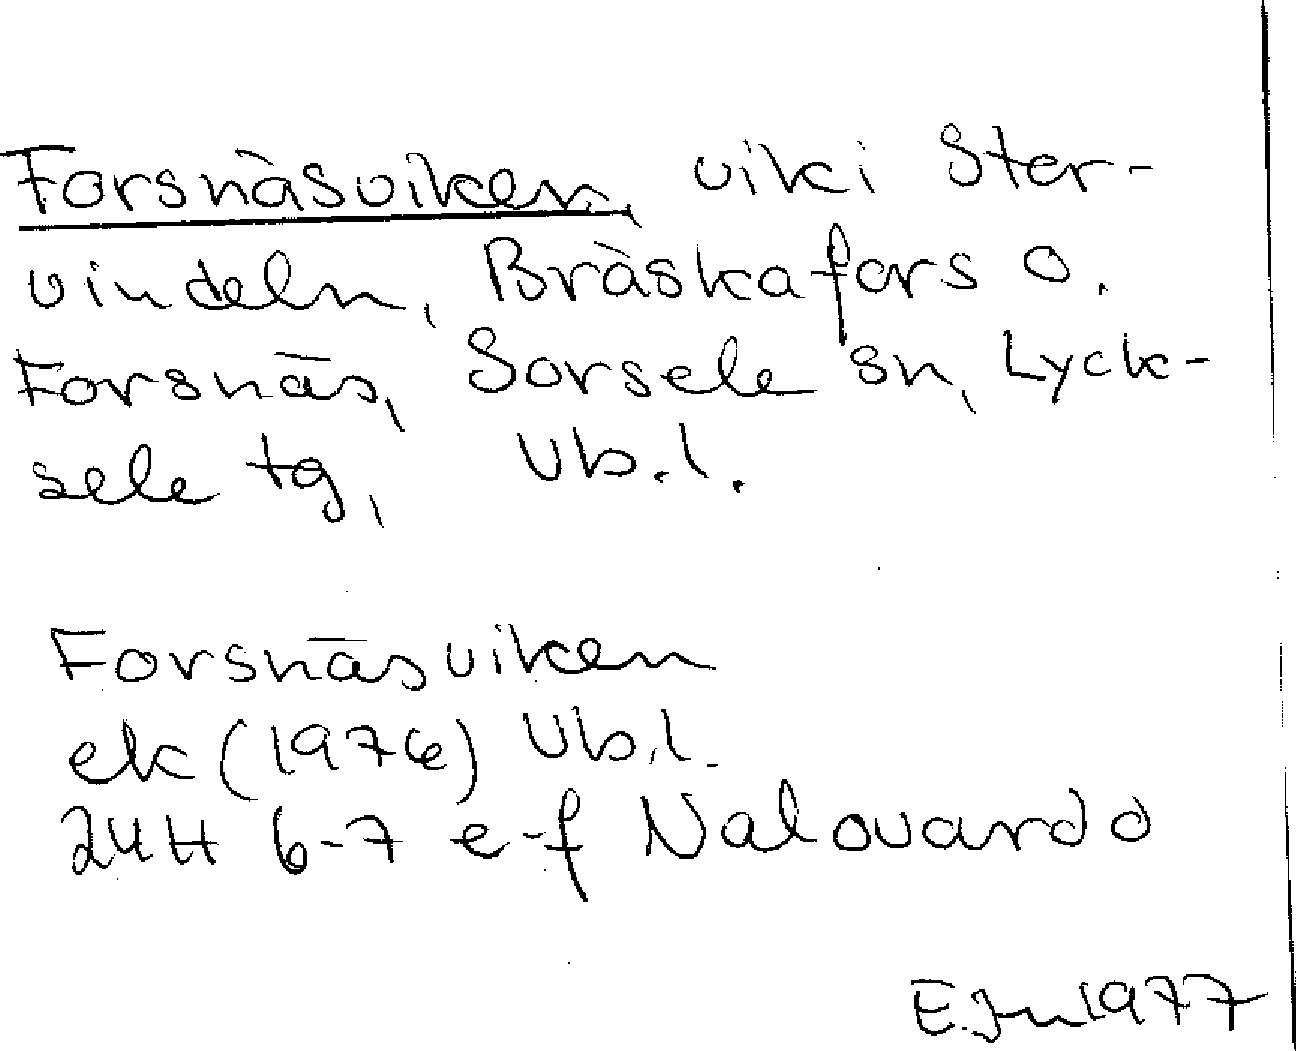 Forsnäsviken, vik i Stor-
vindeln, Bräskafors o.
Forsnäs, Sorsele sn, Lyck-
sele tg, Vb.l.
Forsnäsviken
ek (1976) Vb.l.
24H 6-7 e-f Nalovardo
1977